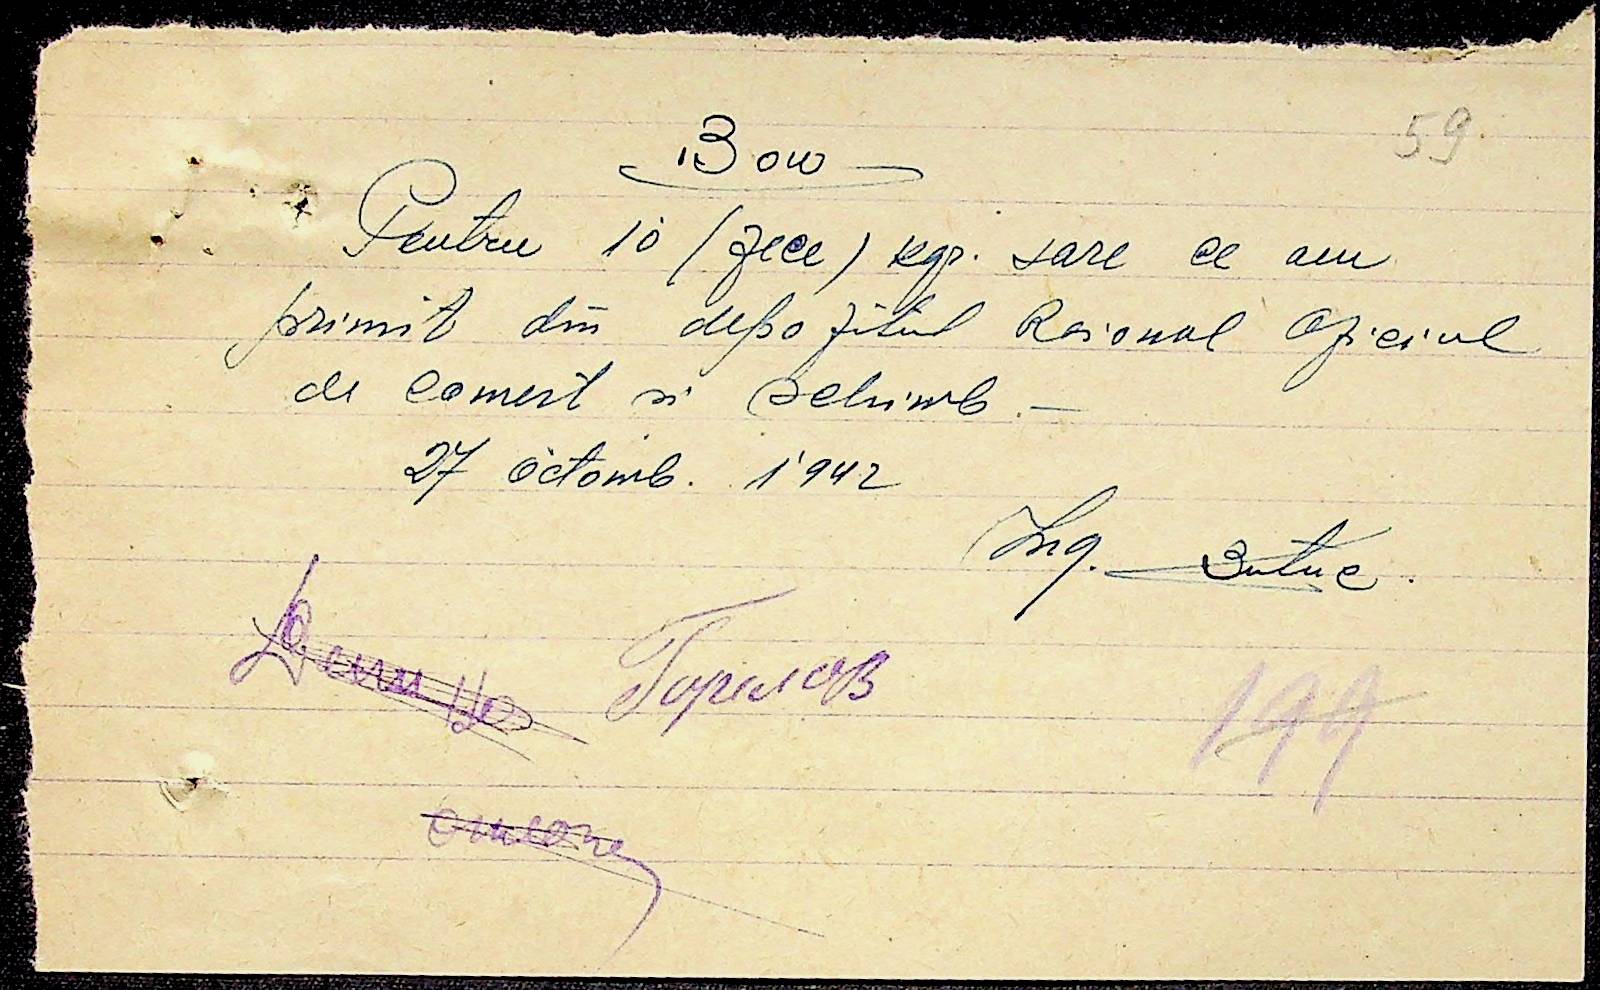 59
Bon
Pentru 10 (zece) kgr. sare ce am
primit din depozitul Raional Oficiul
de Comert si Schimb. —
27 Octomb. 1942
Ing. Butuc.
Горелов
199